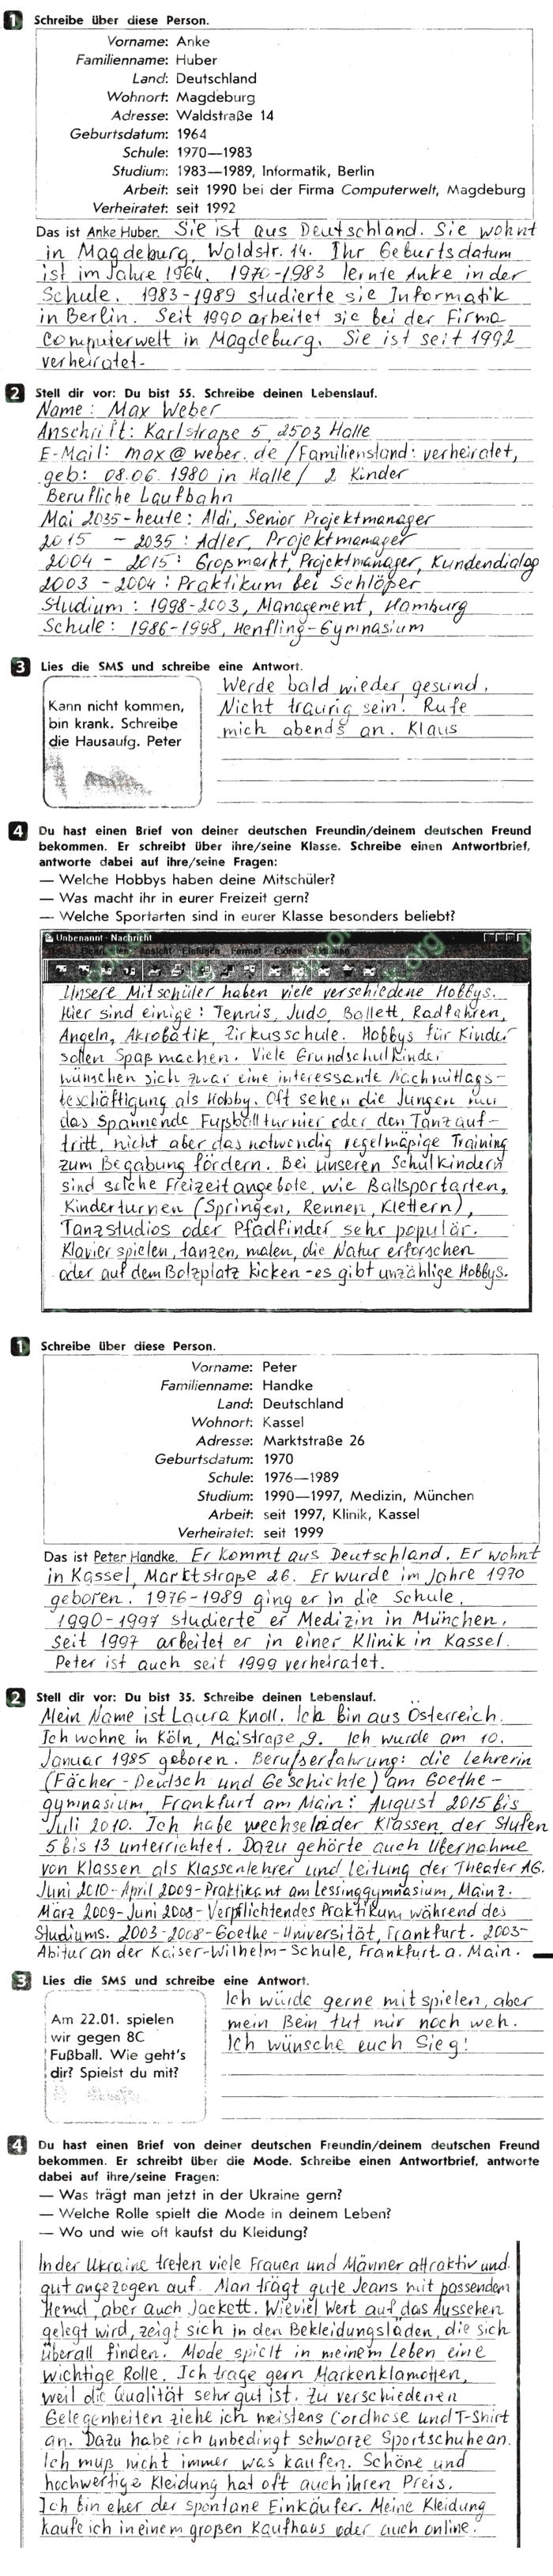 1 Schreibe über diese Person.
Vorname: Anke
Familienname: Huber
Land: Deutschland
Wohnort: Magdeburg
Adresse: Waldstraße 14
Geburtsdatum: 1964
Schule: 1970—1983
Studium: 1983—1989, Informatik, Berlin
Arbeit: seit 1990 bei der Firma Computerwelt, Magdeburg
Verheiratet: seit 1992
Das ist Anke Huber. Sie ist aus Deutschland. Sie wohnt
in Magdeburg, Waldstr. 14. Ihr Geburtsdatum
ist im Jahre 1964. 1970-1983 lernte Anke in der
Schule. 1983-1989 studierte sie Informatik
in Berlin. Seit 1990 arbeitet sie bei der Firma
Computerwelt in Magdeburg. Sie ist seit 1992
verheiratet.
2 Stell dir vor: Du bist 55. Schreibe deinen Lebenslauf.
Name: Max Weber
Anschrift: Karlstraße 5, 2503 Halle
E-Mail: max@weber.de /Familienstand: verheiratet,
geb: 08.06.1980 in Halle / 2 Kinder
Berufliche Laufbahn
Mai 2035-heute: Aldi, Senior Projektmanager
2015 - 2035: Adler, Projektmanager
2004 - 2015: Großmarkt, Projektmanager, Kundendialog
2003 - 2004: Praktikum bei Schlöper
Studium: 1998-2003, Management, Hamburg
Schule: 1986-1998, Henfling-Gymnasium
3 Lies die SMS und schreibe eine Antwort.
Kann nicht kommen,
bin krank. Schreibe
die Hausaufg. Peter
Werde bald wieder gesund.
Nicht traurig sein! Rufe
mich abends an. Klaus
4 Du hast einen Brief von deiner deutschen Freundin/deinem deutschen Freund
bekommen. Er schreibt über ihre/seine Klasse. Schreibe einen Antwortbrief,
antworte dabei auf ihre/seine Fragen:
— Welche Hobbys haben deine Mitschüler?
— Was macht ihr in eurer Freizeit gern?
— Welche Sportarten sind in eurer Klasse besonders beliebt?
Unbenannt - Nachricht
Ansicht Einfügen Format Extras
Unsere Mitschüler haben viele verschiedene Hobbys.
Hier sind einige: Tennis, Judo, Ballett, Radfahren,
Angeln, Akrobatik, Zirkusschule. Hobbys für Kinder
sollen Spaß machen. Viele Grundschulkinder
wünschen sich zwar eine interessante Nachmittags-
beschäftigung als Hobby. Oft sehen die Jungen nur
das spannende Fußballturnier oder den Tanzauf-
tritt, nicht aber das notwendig regelmäßige Training
zum Begabung fördern. Bei unseren Schulkindern
sind solche Freizeitangebote, wie Ballsportarten,
Kinderturnen (Springen, Rennen, Klettern),
Tanzstudios oder Pfadfinder sehr populär.
Klavier spielen, tanzen, malen, die Natur erforschen
oder auf dem Bolzplatz kicken - es gibt unzählige Hobbys.
1 Schreibe über diese Person.
Vorname: Peter
Familienname: Handke
Land: Deutschland
Wohnort: Kassel
Adresse: Marktstraße 26
Geburtsdatum: 1970
Schule: 1976—1989
Studium: 1990—1997, Medizin, München
Arbeit: seit 1997, Klinik, Kassel
Verheiratet: seit 1999
Das ist Peter Handke. Er kommt aus Deutschland. Er wohnt
in Kassel, Marktstraße 26. Er wurde im Jahre 1970
geboren. 1976-1989 ging er in die Schule.
1990-1997 studierte er Medizin in München.
Seit 1997 arbeitet er in einer Klinik in Kassel.
Peter ist auch seit 1999 verheiratet.
2 Stell dir vor: Du bist 35. Schreibe deinen Lebenslauf.
Mein Name ist Laura Knoll. Ich bin aus Österreich.
Ich wohne in Köln, Maistraße 9. Ich wurde am 10.
Januar 1985 geboren. Berufserfahrung: die Lehrerin
(Fächer - Deutsch und Geschichte) am Goethe-
gymnasium, Frankfurt am Main: August 2015 bis
Juli 2010. Ich habe wechselnder Klassen der Stufen
5 bis 13 unterrichtet. Dazu gehörte auch Übernahme
von Klassen als Klassenlehrer und Leitung der Theater AG.
Juni 2010-April 2009-Praktikant am Lessinggymnasium, Mainz.
März 2009-Juni 2008-Verpflichtendes Praktikum während des
Studiums. 2003-2008-Goethe-Universität, Frankfurt. 2003-
Abitur an der Kaiser-Wilhelm-Schule, Frankfurt a. Main.
3 Lies die SMS und schreibe eine Antwort.
Am 22.01. spielen
wir gegen 8C
Fußball. Wie geht's
dir? Spielst du mit?
Ich würde gerne mitspielen, aber
mein Bein tut mir noch weh.
Ich wünsche euch Sieg!
4 Du hast einen Brief von deiner deutschen Freundin/deinem deutschen Freund
bekommen. Er schreibt über die Mode. Schreibe einen Antwortbrief, antworte
dabei auf ihre/seine Fragen:
— Was trägt man jetzt in der Ukraine gern?
— Welche Rolle spielt die Mode in deinem Leben?
— Wo und wie oft kaufst du Kleidung?
In der Ukraine treten viele Frauen und Männer attraktiv und
gut angezogen auf. Man trägt gute Jeans mit passendem
Hemd, aber auch Jackett. Wieviel Wert auf das Aussehen
gelegt wird, zeigt sich in den Bekleidungsläden, die sich
überall finden. Mode spielt in meinem Leben eine
wichtige Rolle. Ich trage gern Markenklamotten,
weil die Qualität sehr gut ist. Zu verschiedenen
Gelegenheiten ziehe ich meistens Cordhose und T-Shirt
an. Dazu habe ich unbedingt schwarze Sportschuhe an.
Ich muß nicht immer was kaufen. Schöne und
hochwertige Kleidung hat oft auch ihren Preis.
Ich bin eher der spontane Einkäufer. Meine Kleidung
kaufe ich in einem großen Kaufhaus oder auch online.